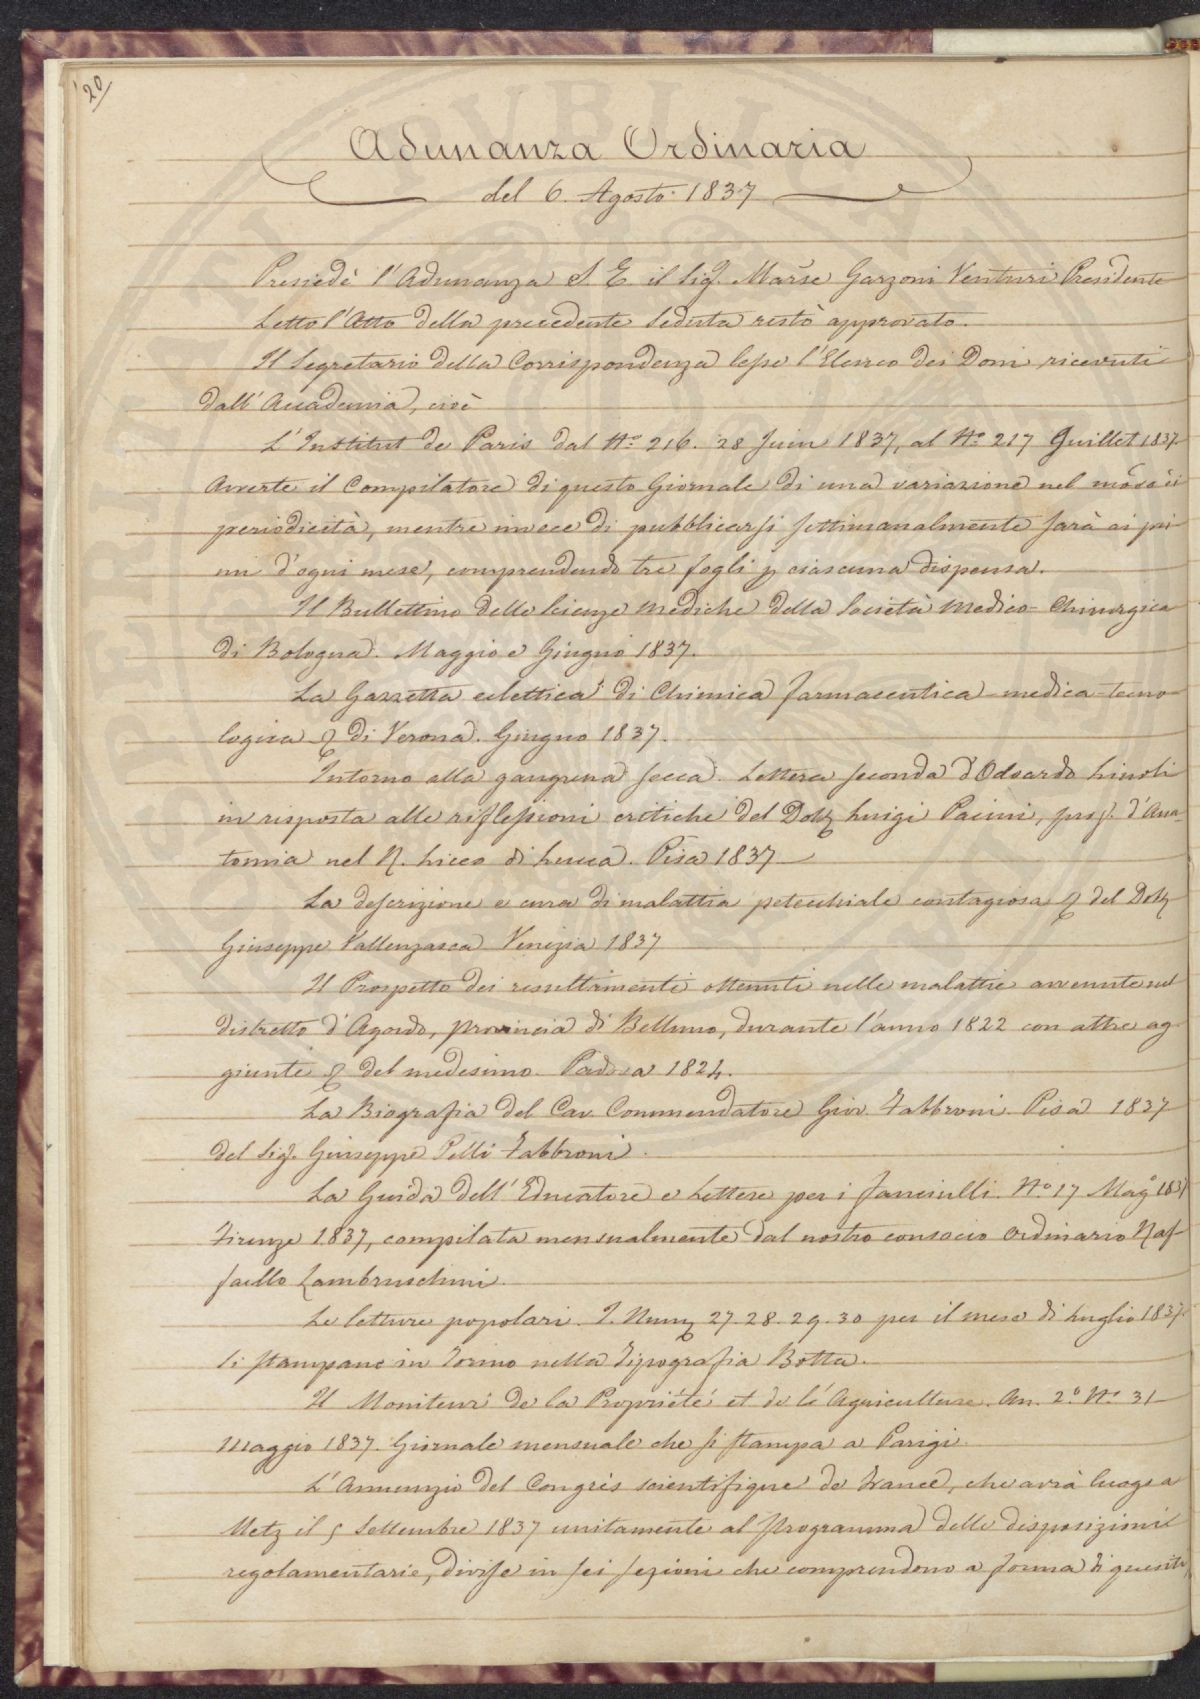 20
Adunanza Ordinaria
del 6. Agosto 1837
Presiedè l'Adunanza S. E. il Sig. Marse Garzoni Venturi Presidente
Letto l'Atto della precedente Seduta restò approvato.
Il Segretario della Corrispondenza lesse l'Elenco dei Doni ricevuti
dall'Accademia, cioè
L'Institut de Paris dal No. 216. 28 Juin 1837, al No. 217 Juillet 1837.
Avverte il Compilatore di questo Giornale di una variazione nel modo di
periodicità, mentre invece di pubblicarsi settimanalmente sarà ai pri
mi d'ogni mese, comprendendo tre fogli p ciascuna dispensa.
Il Bullettino delle Scienze mediche della Società Medico-Chirurgica
di Bologna. Maggio e Giugno 1837.
La Gazzetta eclettica di Chimica farmaceutica-medica-tecno
logica & di Verona. Giugno 1837.
Intorno alla gangrena secca. Lettera seconda d'Odoardo Linoli
in risposta alle riflessioni critiche del Dott Luigi Pacini, prof. d'Ana-
tomia nel R. Liceo di Lucca. Pisa 1837
La descrizione e cura di malattia petecchiale contagiosa & del Dott
Giuseppe Vallenzasca Venezia 1837
Il Prospetto dei resultamenti ottenuti nelle malattie avvenute nel
distretto d'Agordo, provincia di Belluno, durante l'anno 1822 con altre ag
giunte & del medesimo. Padova 1824.
La Biografia del Cav. Commendatore Giov. Fabbroni. Pisa 1837
del Sig. Giuseppe Pelli Fabbroni.
La Guida dell'Educatore e Letture per i fanciulli. No 17 Mago 1837
Firenze 1837, compilata mensualmente dal nostro consocio Ordinario Raf
faello Lambruschini.
Le letture popolari. I. Num 27. 28. 29. 30 per il mese di Luglio 1837.
Si stampano in Torino nella Tipografia Botta.
Il Moniteur de la Propriété et de l'é Agriculture. An. 2o. No. 31
Maggio 1837. Giornale mensuale che si stampa a Parigi.
L'Annunzio del Congrès scientifique de France, che avrà luogo a
Metz il 5 Settembre 1837 unitamente al programma delle disposizioni
regolamentarie, divise in sei sezioni che comprendono a forma di quesiti,